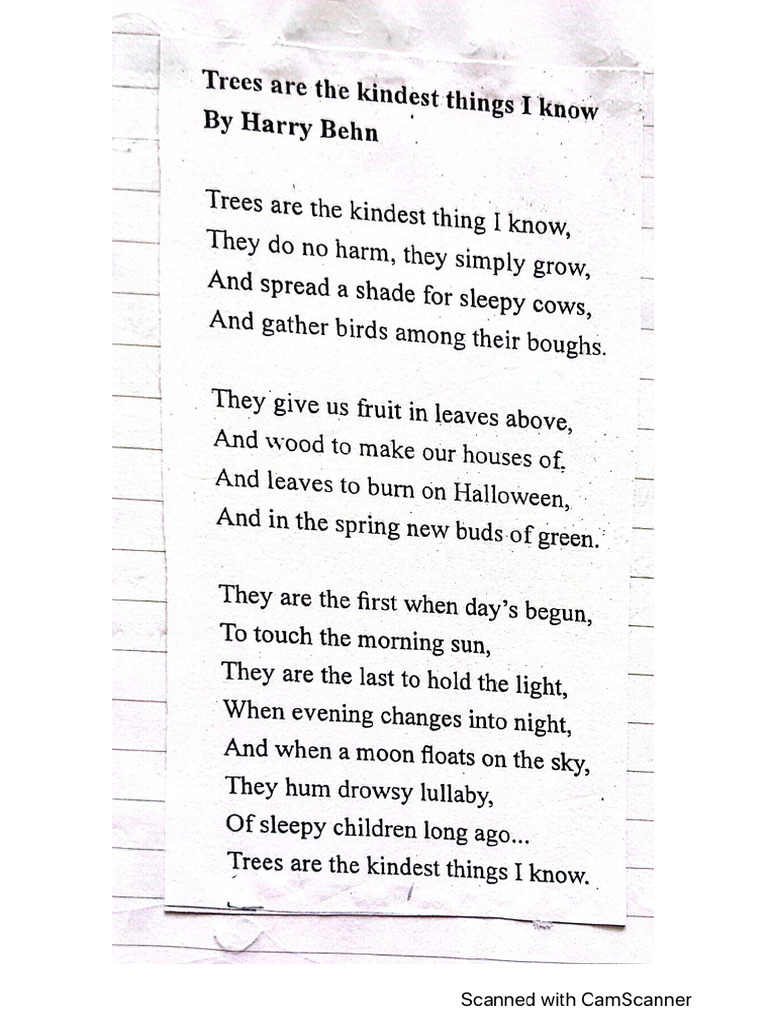 Trees are the kindest things I know
By Harry Behn
Trees are the kindest thing I know,
They do no harm, they simply grow,
And spread a shade for sleepy cows,
And gather birds among their boughs.
They give us fruit in leaves above,
And wood to make our houses of.
And leaves to burn on Halloween,
And in the spring new buds of green.
They are the first when day's begun,
To touch the morning sun,
They are the last to hold the light,
When evening changes into night,
And when a moon floats on the sky,
They hum drowsy lullaby,
Of sleepy children long ago...
Trees are the kindest things I know.
Scanned with CamScanner